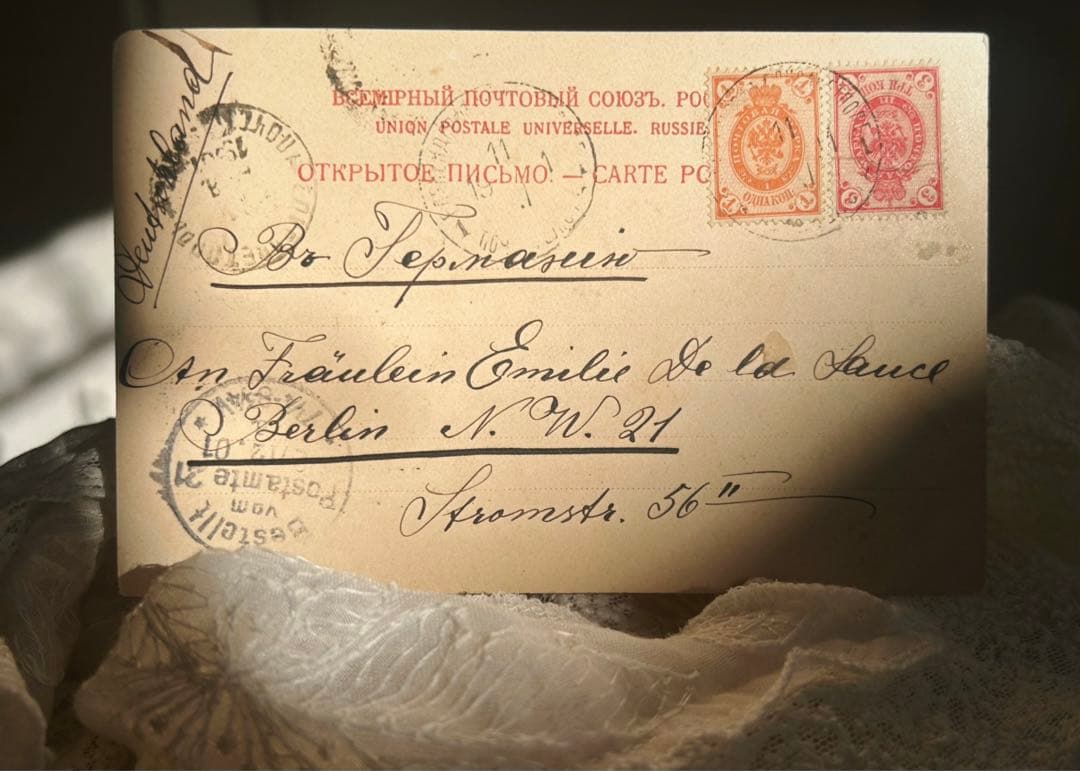 Deutschland
ВСЕМІРНЫЙ ПОЧТОВЫЙ СОЮЗЪ. РОС
UNION POSTALE UNIVERSELLE. RUSSIE
ОТКРЫТОЕ ПИСЬМО — CARTE PO
1 1
ОДНАКОП.
3 3
Въ Германію
An Fräulein Emilie De la Sauce
Berlin N. W. 21
Stromstr. 56 II
Bestellt
vom
Postamte 21